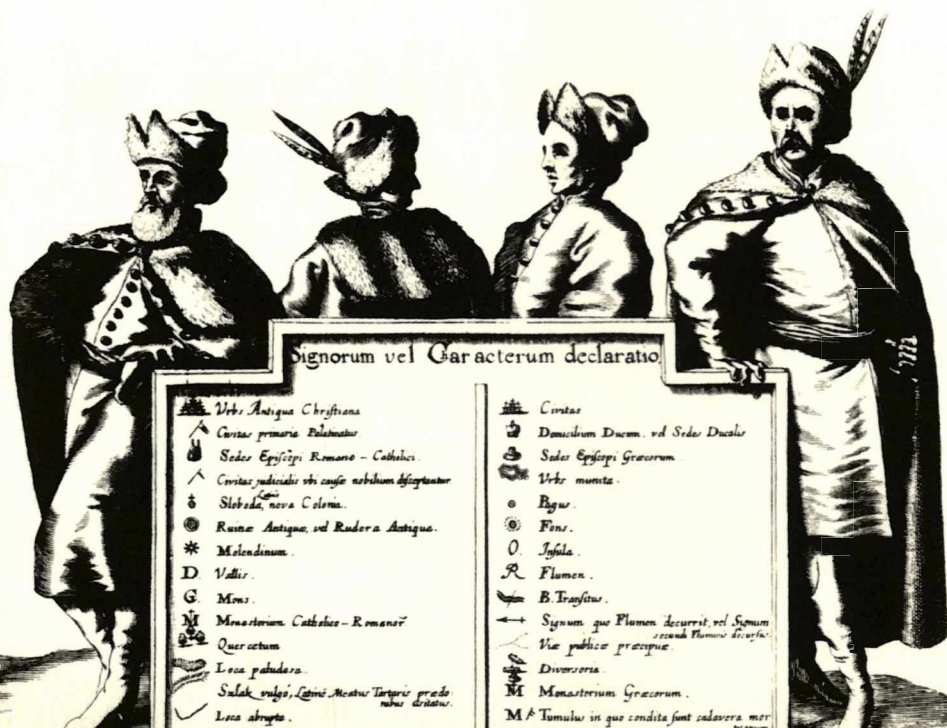 Signorum vel Caracterum declaratio
Vrbs Antiqua Christiana
Civitas primaria Palatinatus
Sedes Episcopi Romano-Catholici.
Civitas judicialis vbi causæ nobilium disceptantur
Sloboda, Latinè nova Colonia.
Ruinæ Antiquæ, vel Rudera Antiqua.
Molendinum.
D. Vallis.
G. Mons.
M Monasterium Catholico-Romanorū
Quercetum
Loca paludosa.
Szlak vulgo, Latinè Meatus Tartaris prædo
nibus usitatus.
Loca abrupta.
Civitas
Domicilium Ducum. vel Sedes Ducalis
Sedes Episcopi Græcorum
Vrbs munita.
Pagus.
Fons.
O. Insula.
R Flumen.
B. Transitus.
Signum quo Flumen decurrit, vel Signum
secundi Fluminis decursus.
Viæ publicæ præcipuæ.
Diversoria.
M Monasterium Græcorum.
M Tumulus in quo condita sunt cadavera mor